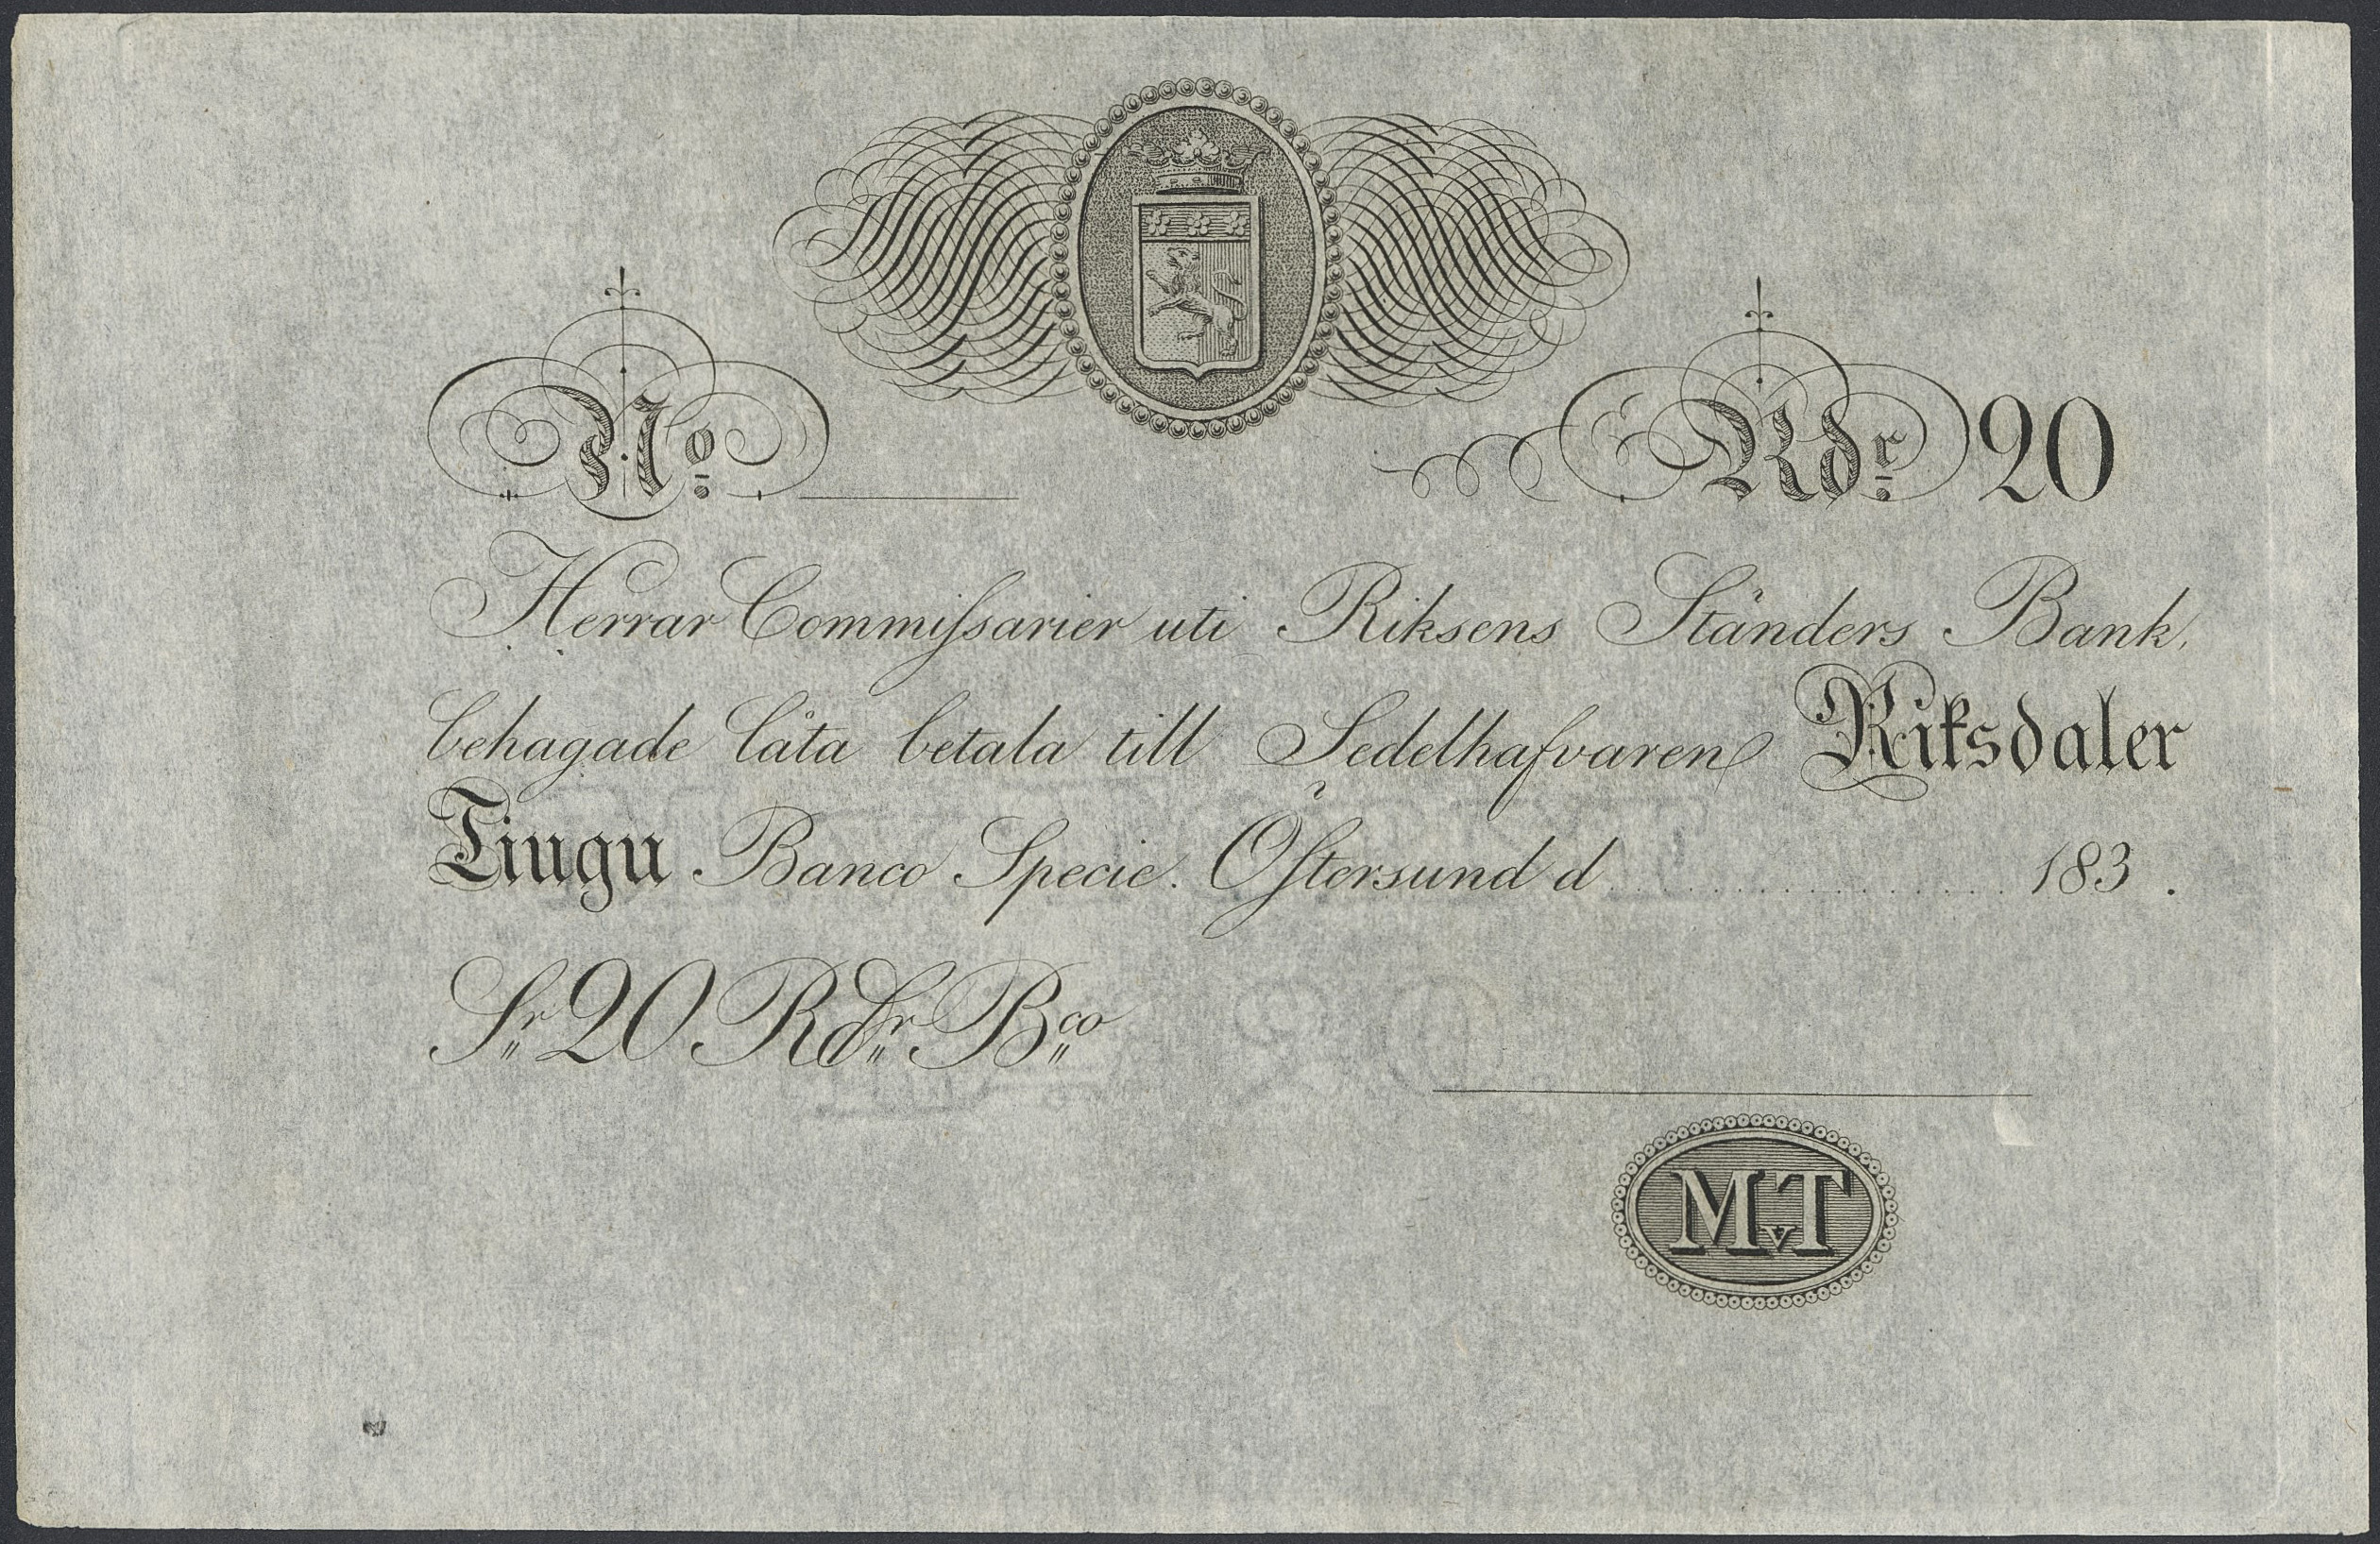 No Rdr 20
Herrar Commissarier uti Riksens Ständers Bank,
behagade låta betala till Sedelhafvaren Riksdaler
Tiugu Banco Specie. Östersund d ................ 183 .
Sr 20 RdSr Bco
MvT